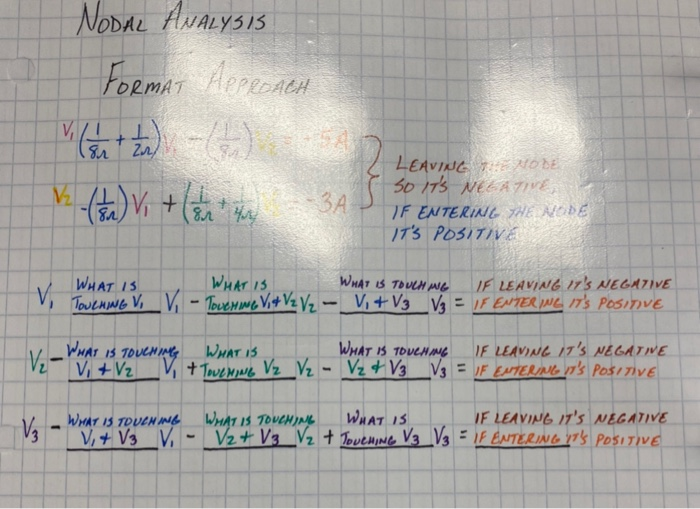 NODAL ANALYSIS
FORMAT APPROACH
V₁ (1/8Ω + 1/2Ω) V₁ - (1/8Ω) V₂ = -5A
V₂ -(1/8Ω) V₁ + (1/8Ω + 1/4Ω) - 3A
LEAVING THE NODE
SO IT'S NEGATIVE,
IF ENTERING THE NODE
IT'S POSITIVE
V₁ WHAT IS TOUCHING V₁ V₁ - WHAT IS TOUCHING V₁+V₂ V₂ - WHAT IS TOUCHING V₁+V₃ V₃ = IF LEAVING IT'S NEGATIVE IF ENTERING IT'S POSITIVE
V₂ - WHAT IS TOUCHING V₁+V₂ V₁ + WHAT IS TOUCHING V₂ V₂ - WHAT IS TOUCHING V₂+V₃ V₃ = IF LEAVING IT'S NEGATIVE IF ENTERING IT'S POSITIVE
V₃ - WHAT IS TOUCHING V₁+V₃ V₁ - WHAT IS TOUCHING V₂+V₃ V₂ + WHAT IS TOUCHING V₃ V₃ = IF LEAVING IT'S NEGATIVE IF ENTERING IT'S POSITIVE